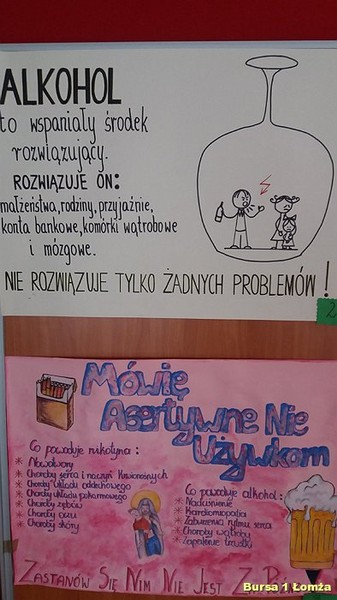 ALKOHOL
to wspaniały środek
rozwiązujący.
ROZWIĄZUJE ON:
małżeństwa, rodziny, przyjaźnie,
konta bankowe, komórki wątrobowe
i mózgowe.
NIE ROZWIĄZUJE TYLKO ŻADNYCH PROBLEMÓW!
2
Mówię
Asertywne Nie
Używkom
Co powoduje nikotyna:
* Nowotwory
* Choroby serca i naczyń krwionośnych
* Choroby układu oddechowego
* Choroby układu pokarmowego
* Choroby zębów
* Choroby oczu
* Choroby skóry
Co powoduje alkohol:
* Nadciśnienie
* Kardiomiopatia
* Zaburzenia rytmu serca
* Choroby wątroby
* Zapalenie trzustki
ZASTANÓW SIĘ NIM NIE JEST ZA
Bursa 1 Łomża